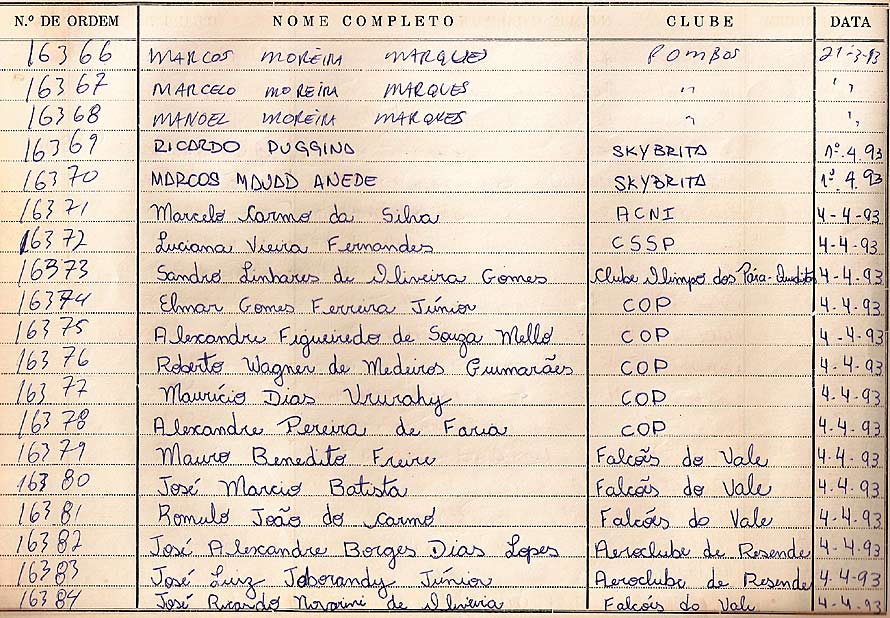 N.º DE ORDEM NOME COMPLETO CLUBE DATA
16366 MARCOS MOREIRA MARQUES POMBOS 21-3-93
16367 MARCELO MOREIRA MARQUES " "
16368 MANOEL MOREIRA MARQUES " "
16369 RICARDO PUGGINA SKYBRITA 1º.4.93
16370 MARCOS MOUAD ANEDE SKYBRITA 1º.4.93
16371 Marcelo Carmo da Silva ACNI 4-4-93
16372 Luciana Vieira Fernandes CSSP 4-4-93
16373 Sandro Linhares de Oliveira Gomes Clube Olimpo dos Pára-Quedistas 4-4-93
16374 Elmar Gomes Ferreira Júnior COP 4-4-93
16375 Alexandre Figueiredo de Souza Mello COP 4-4-93
16376 Roberto Wagner de Medeiros Guimarães COP 4-4-93
16377 Maurício Dias Ururahy COP 4-4-93
16378 Alexandre Pereira de Faria COP 4-4-93
16379 Mauro Benedito Freire Falcões do Vale 4-4-93
16380 José Marcio Batista Falcões do Vale 4-4-93
16381 Romulo João do Carmo Falcões do Vale 4-4-93
16382 José Alexandre Borges Dias Lopes Aeroclube de Resende 4-4-93
16383 José Luiz Joborandy Júnior Aeroclube de Resende 4-4-93
16384 José Ricardo de Oliveira Falcões do Vale 4-4-93